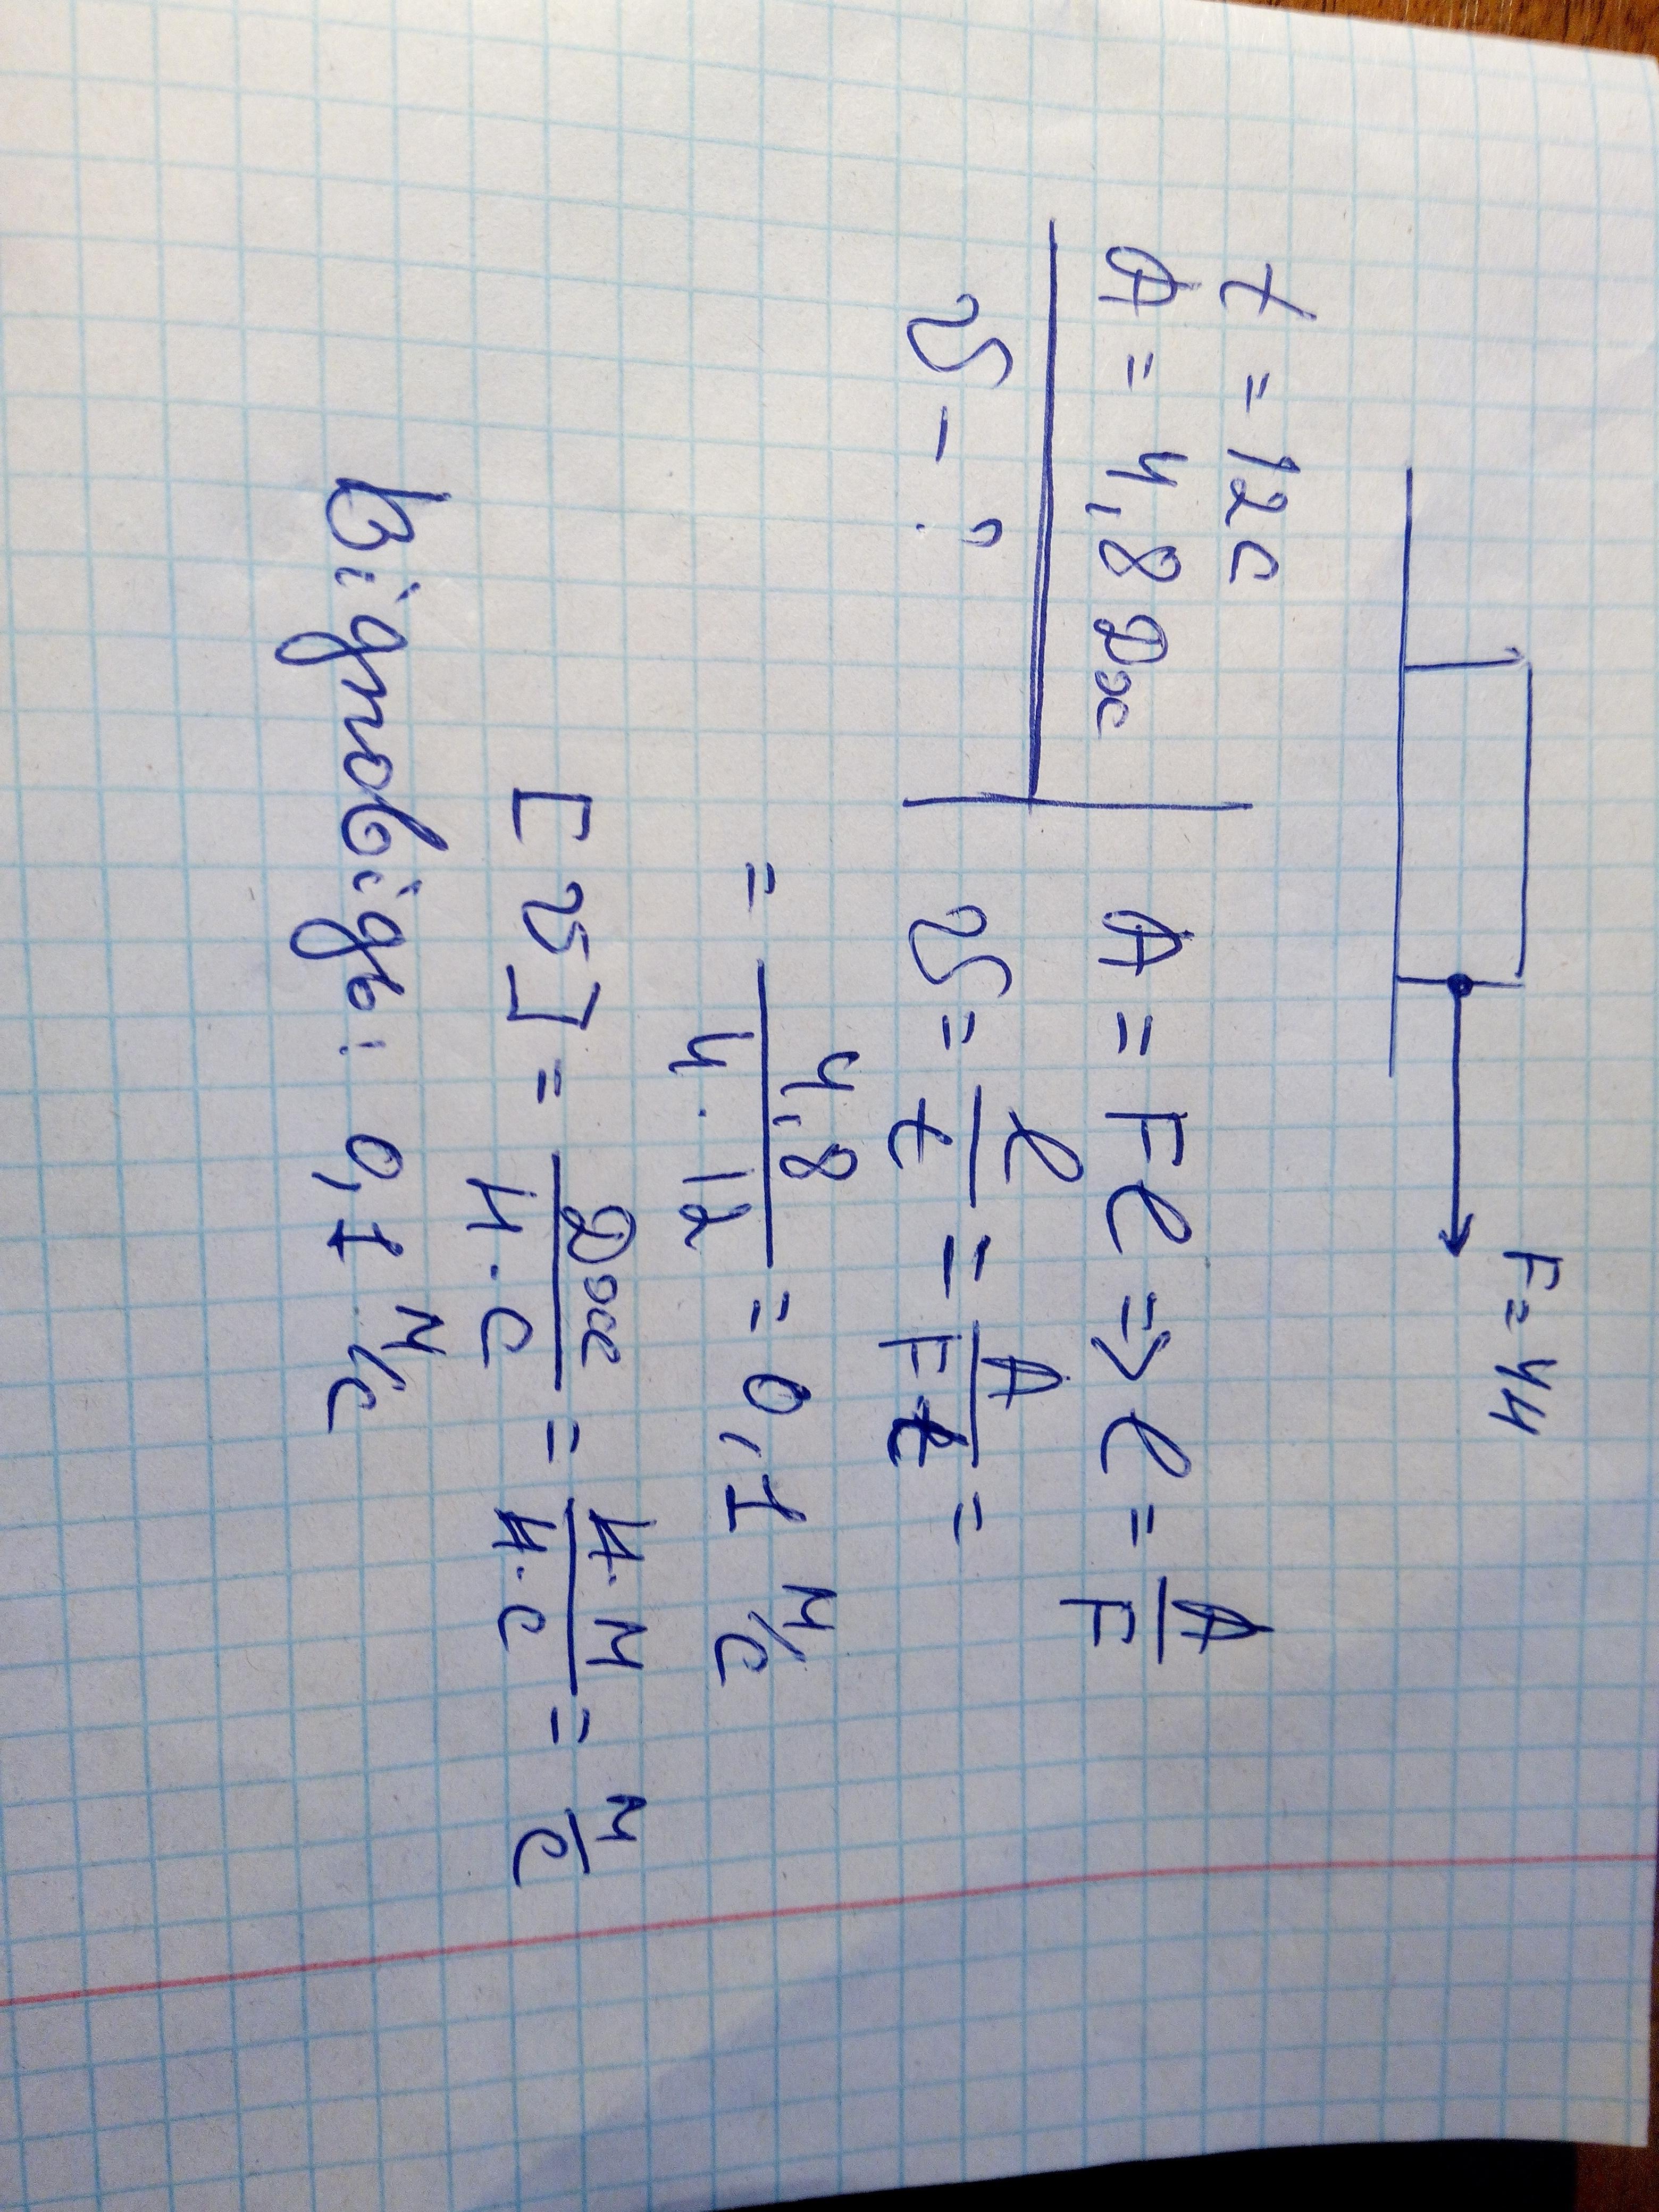 F = 4 Н
t = 12 с
A = 4,8 Дж
υ - ?
A = Fl => l = A/F
υ = l/t = A/Ft =
= 4,8/4·12 = 0,1 м/с
[υ] = Дж/Н·с = Н·м/Н·с = м/с
Відповідь: 0,1 м/с